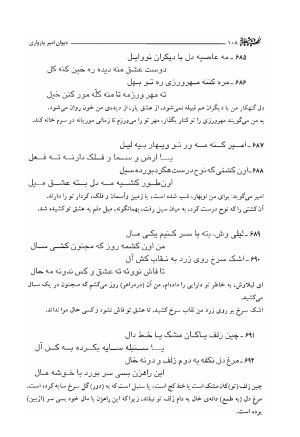 ۱۰۸ دیوان امیر پازواری
۶۸۵ - مه عاصیه دل با دیگران نووایل
دوست عشق منه دیده ره حین کنه گل
۶۸۶ - مره گننه مهرورزی ره تو بهل
ته مهر ورزمه تا منه کلّه مور کنن خیل
دل گنهکار من با دیگران هم قبیله نمی‌شود، از عشق یار، از دیده‌ی من خون روان می‌شود.
به من می‌گویند مهرورزی را تو کنار بگذار، مهر تو را می‌ورزم تا زمانی موریانه در سرم خانه کند.
۶۸۷ - امیر گنه مه ور نو وبهار بیه لیل
یا ارض و سما و فلک دارنه ته فعل
۶۸۸ - اون کشتی که نوح درست هکرد بورده سیل
اون طور کشیه مه دل بته عشق میل
امیر می‌گوید: برای من نوبهار، شب شده است، یا زمین و آسمان و فلک، کردار تو را دارند.
آن کشتی را که نوح درست کرد، به میان سیل رفت، بهمانگونه، میل دلم به عشق تو کشیده شد.
۶۸۹ - لیلی وش، بته یا سر کنیم یکی مال
من اون کشمه روز که مجنون کشی سال
۶۹۰ - اشک سرخ روی زرد به نقاب کش آل
تا فاش نووئه ته عشق و کس ندونه مه حال
ای لیلاوش، به خاطر تو من آن (درد) را روز می‌کشم که مجنون در یک سال
می‌کشید.
اشک سرخ بر روی زرد من نقاب سرخ کشید، تا عشق تو فاش نشود و کسی حال مرا نداند.
۶۹۱ - چین زلف یا کان مشک یا خط دال
یا سنبله سایه بکرده به گل آل
۶۹۲ - مرغ دل نکفه به دوم زلف و دونه خال
این راهزن بسی سر بورد با خوشه مال
چین زلف (تو) کان مشک است یا خط کج است، یا سنبل است که به (دور) گل سرخ سایه کرده است.
مرغ دل (به طمع) دانه‌ی خال به دام زلف تو نیفتد، زیرا که این راهزن با مال خود بسی سر (از بین)
برده است.